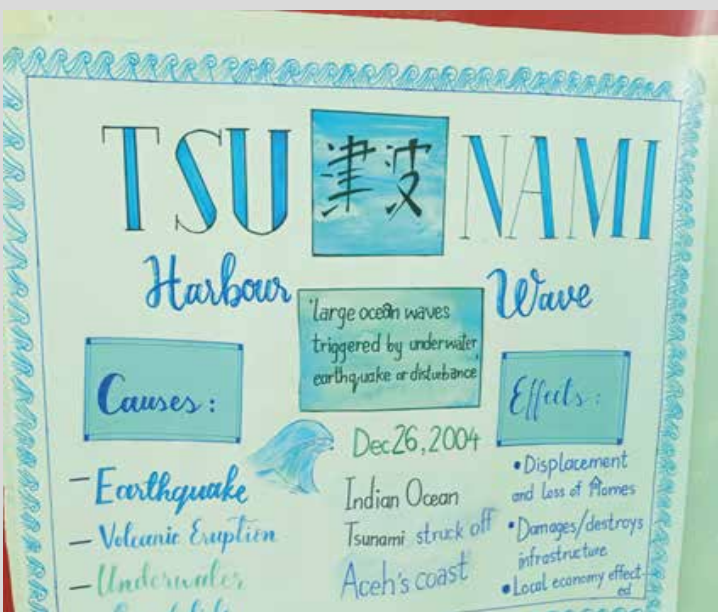 TSU 津波 NAMI
Harbour Wave
"large ocean waves
triggered by underwater
earthquake or disturbance
Causes :
– Earthquake
– Volcanic Eruption
– Underwater
Dec 26, 2004
Indian Ocean
Tsunami struck off
Aceh's coast
Effects :
• Displacement
and Loss of Homes
• Damages/destroys
infrastructure
• Local economy effect-
ed